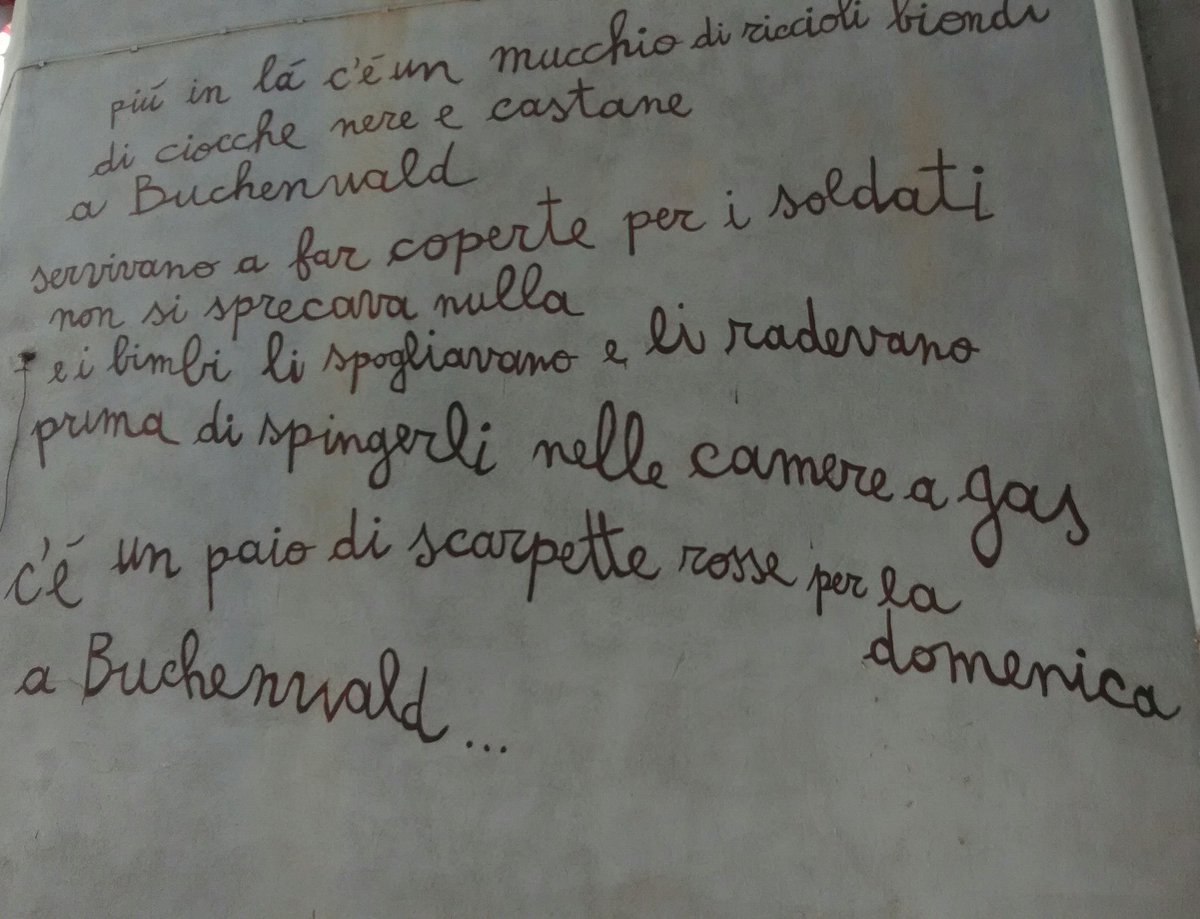 piú in lá c'é un mucchio di riccioli biondi
di ciocche nere e castane
a Buchenwald
servivano a far coperte per i soldati
non si sprecava nulla
e i bimbi li spogliavano e li radevano
prima di spingerli nelle camere a gas
c'é un paio di scarpette rosse per la
domenica
a Buchenwald...